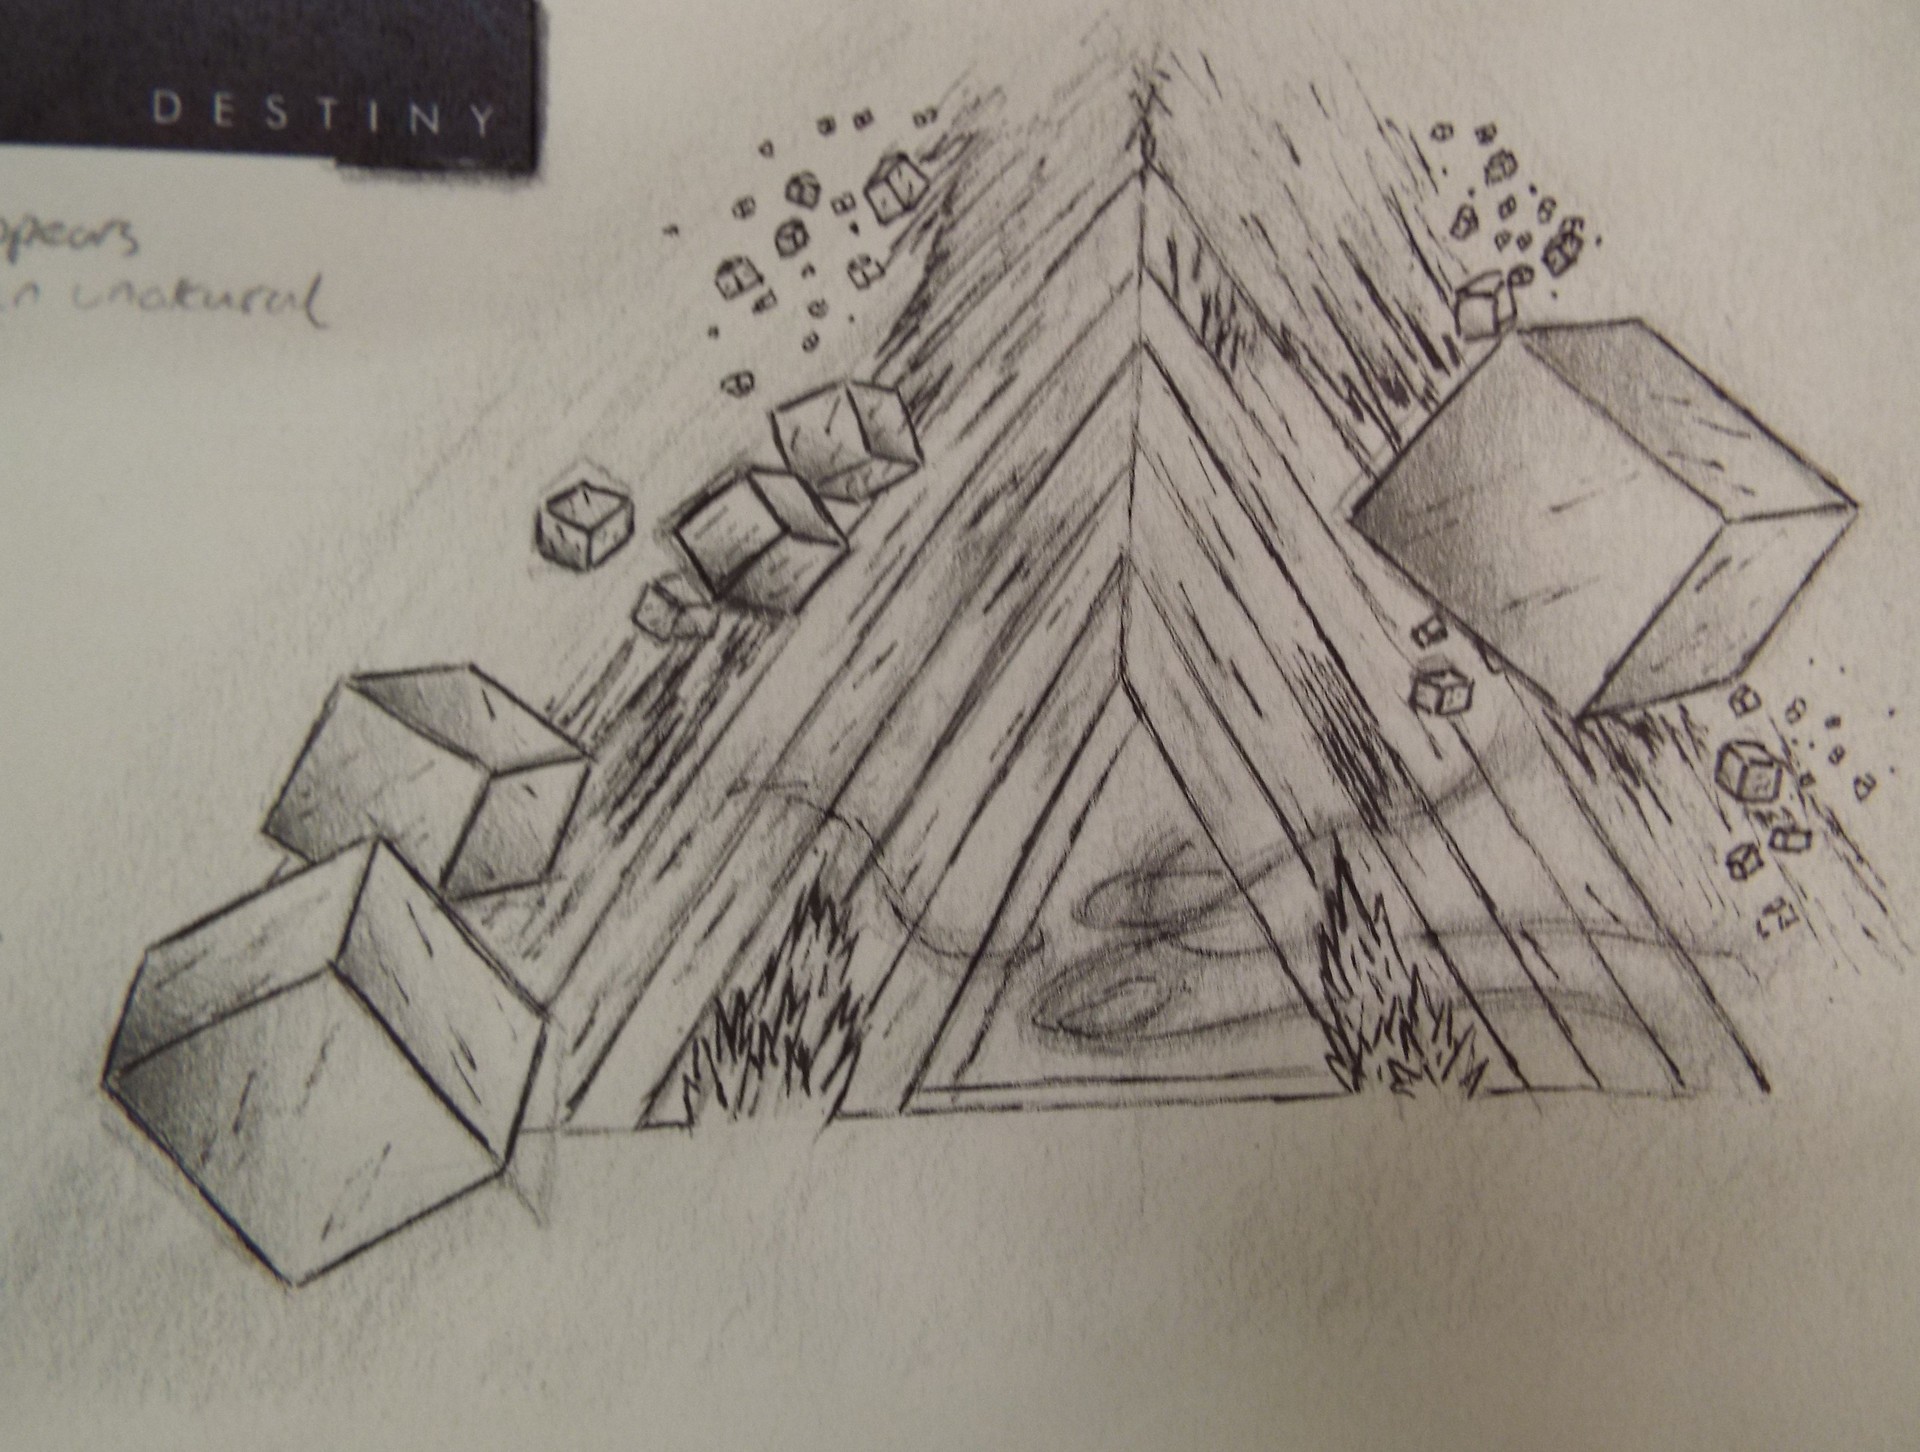 DESTINY
ppears
in unatural